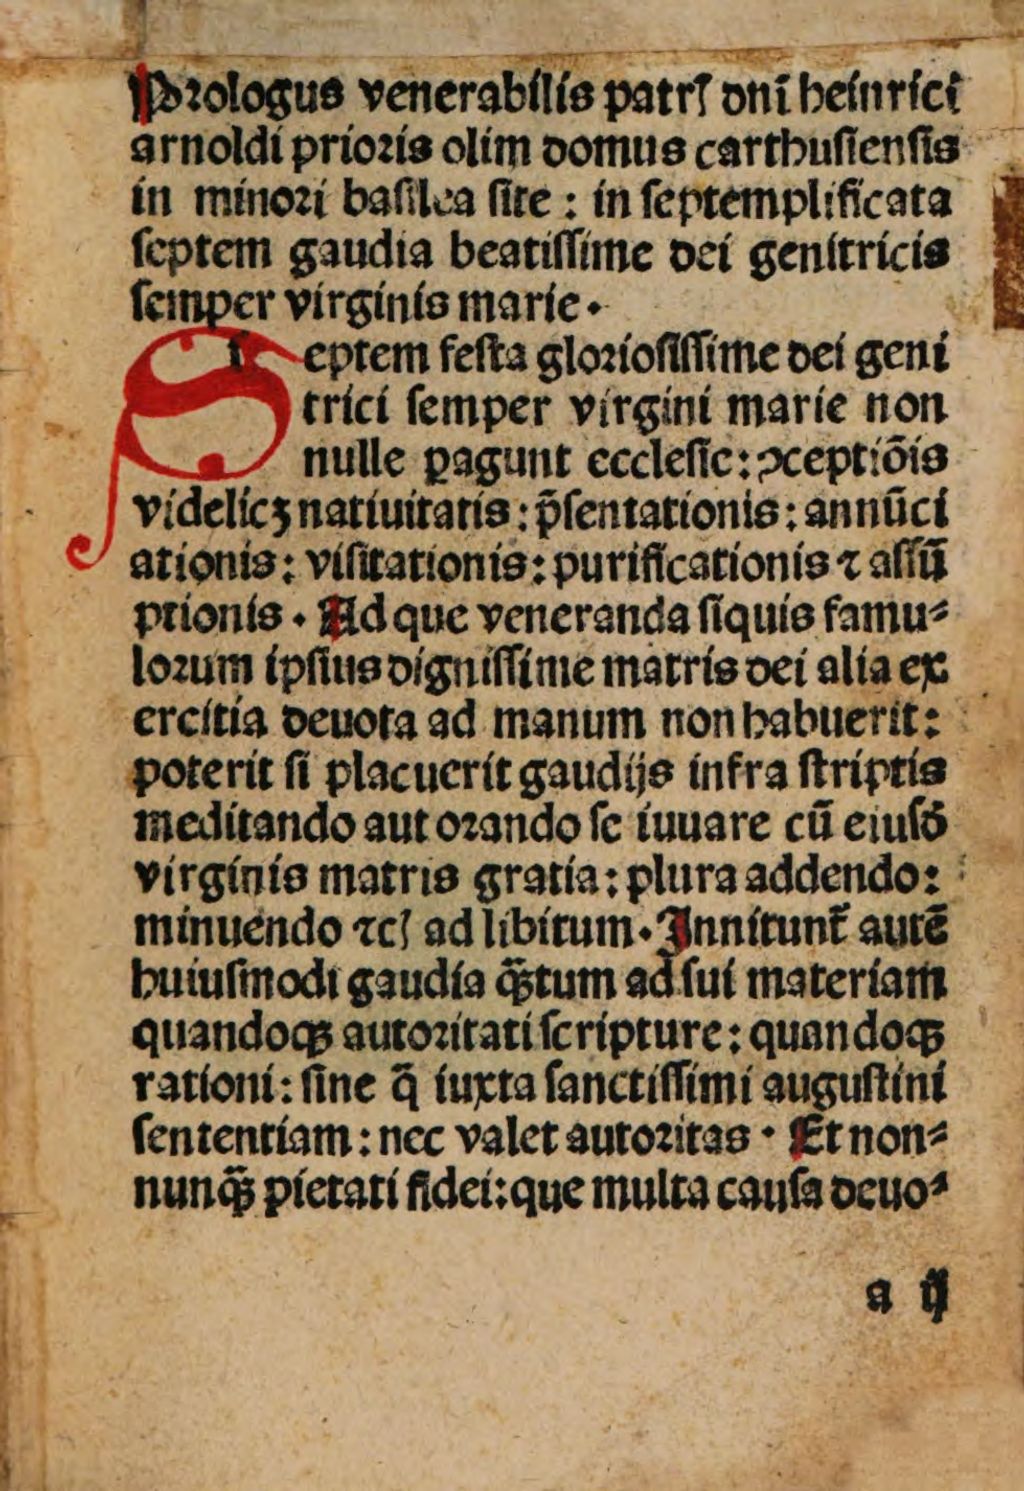 Prologus venerabilis patrꝭ dnī heinrici
arnoldi prioris olim domus carthusiensis
in minori basilea site : in septemplificata
septem gaudia beatissime dei genitricis
semper virginis marie .
Septem festa gloriosissime dei geni
trici semper virgini marie non
nulle ꝑagunt ecclesie : ꝯceptiōis
videlicꝫ natiuitatis : p̄sentationis : annūci
ationis : visitationis : purificationis ⁊ assū
ptionis . Ad que veneranda siquis famu⸗
lorum ipsius dignissime matris dei alia ex
ercitia deuota ad manum non habuerit :
poterit si placuerit gaudijs infra striptis
meditando aut orando se iuuare cū eiusđ
virginis matris gratia : plura addendo :
minuendo ⁊cꝭ ad libitum . Innitunt̄ autē
huiusmodi gaudia q̄ꝫtum ad sui materiam
quandoqꝫ autoritati scripture : quandoqꝫ
rationi : sine q̄ iuxta sanctissimi augustini
sententiam : nec valet autoritas . Et non⸗
nunq̄ꝫ pietati fidei : que multa causa deuo⸗
a ij